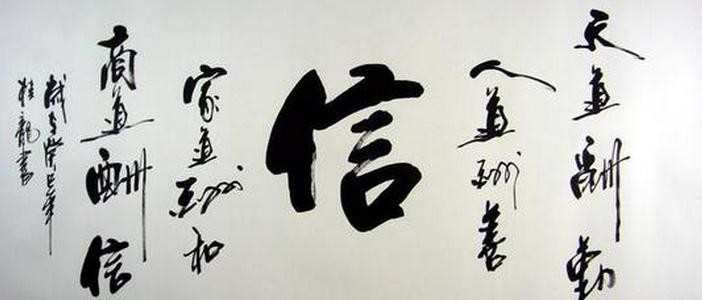 天道酬勤
人道酬善
信
家道酬和
商道酬信
癸巳年
龙书